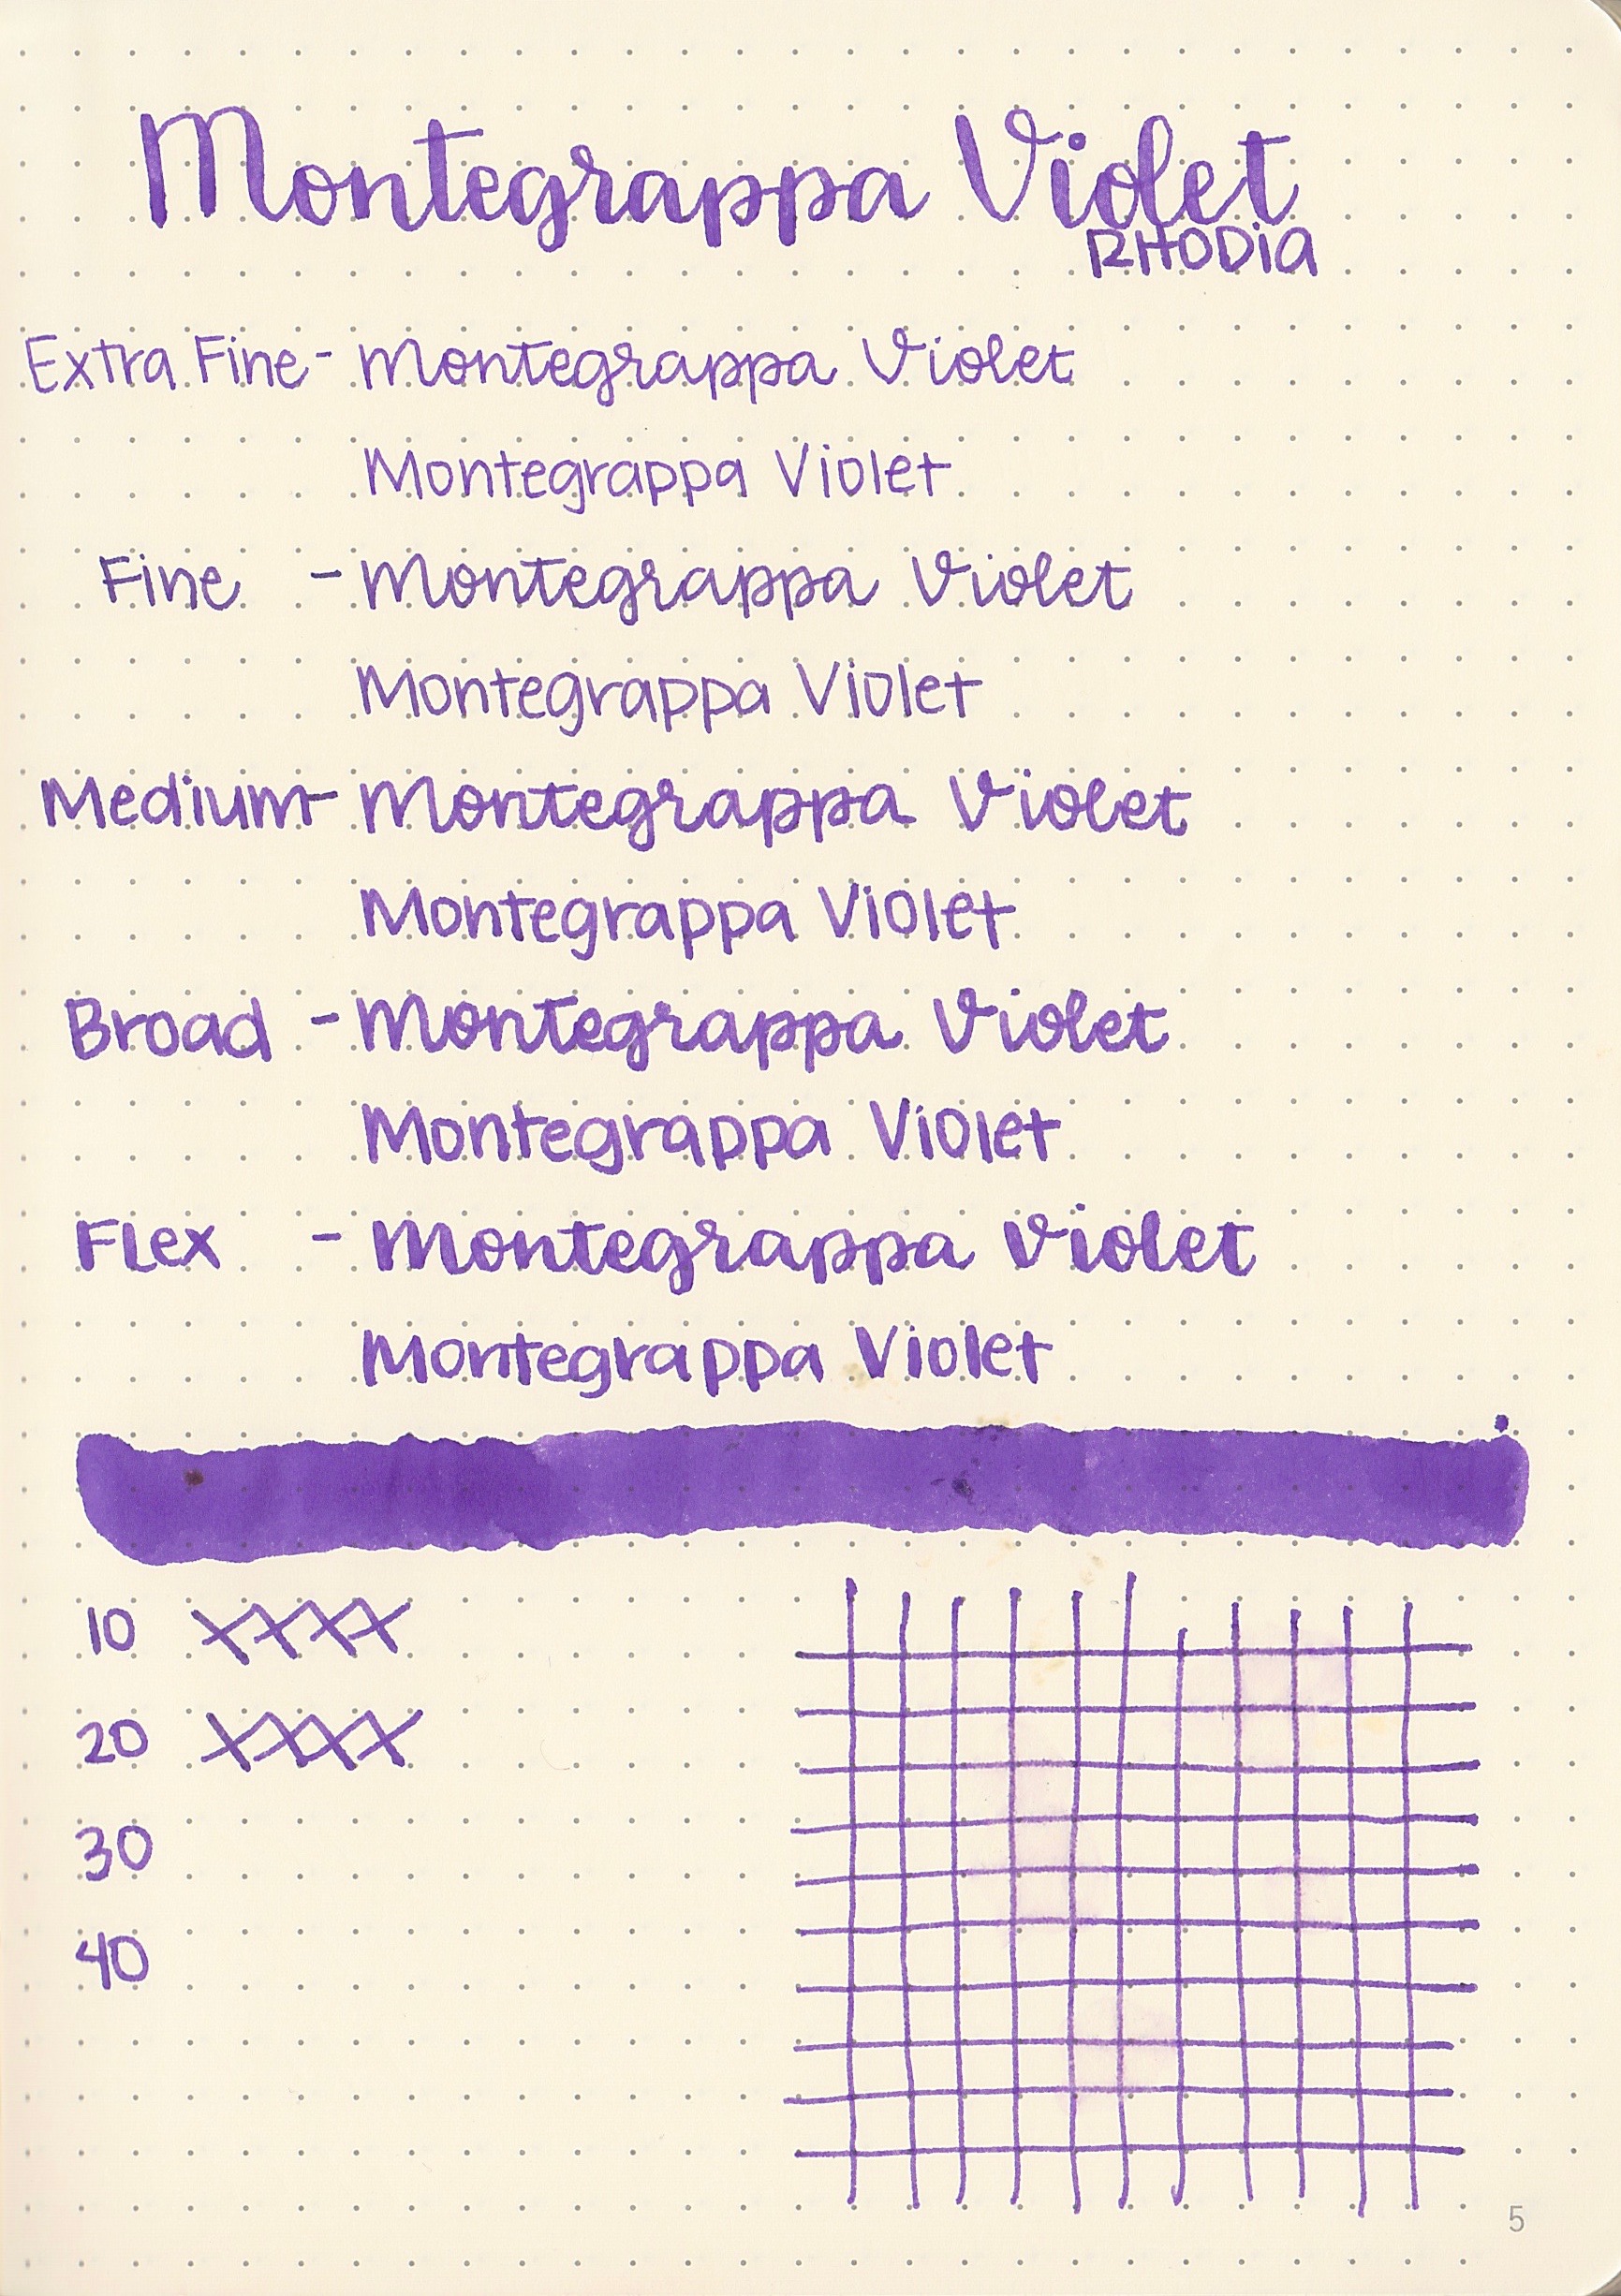 Montegrappa Violet
RHODIA
Extra Fine - Montegrappa Violet
Montegrappa Violet
Fine - Montegrappa Violet
Montegrappa Violet
Medium - Montegrappa Violet
Montegrappa Violet
Broad - Montegrappa Violet
Montegrappa Violet
Flex - Montegrappa Violet
Montegrappa Violet
10
20
30
40
5